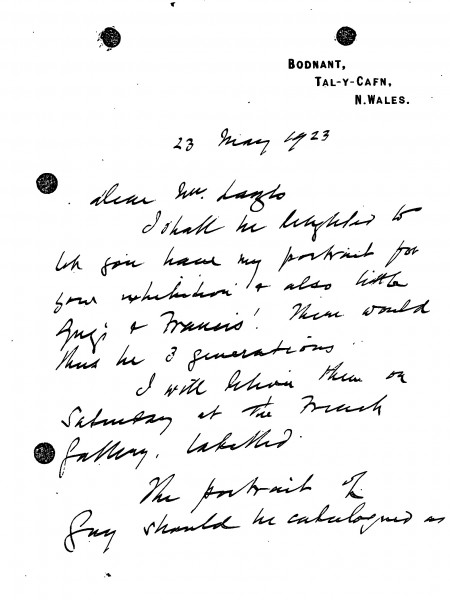 BODNANT,
TAL-Y-CAFN,
N. WALES.
23 May 1923
Dear Mr. Laszlo
I shall be delighted to
let you have my portrait for
your exhibition & also little
& Francis'. There would
thus be 3 generations.
I will deliver them on
Saturday at the French
Gallery, labelled.
The portrait of
Guy should be catalogued as